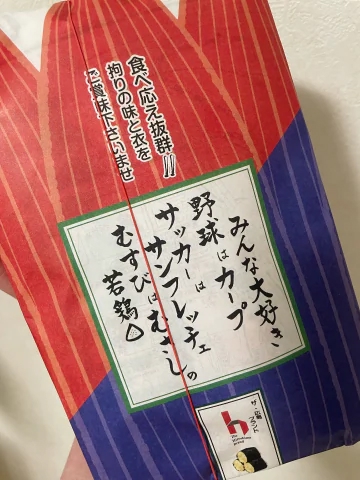 食べ応え抜群!!
拘りの味と衣を
ご賞味下さいませ
みんな大好き
野球はカープ
サッカーは
サンフレッチェ
むすびはむさしの
若鶏
ザ・広島
ブランド
the
hiroshima
brand